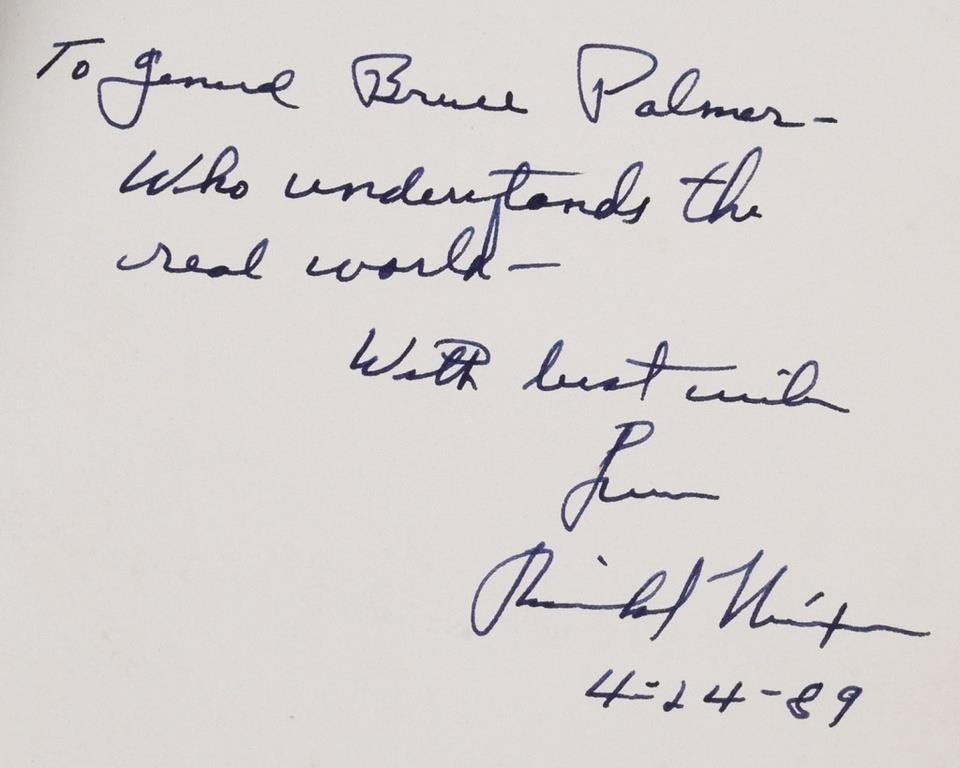 To General Bruce Palmer-
Who understands the
real world-
With best wishes
from
Richard Nixon
4-24-89